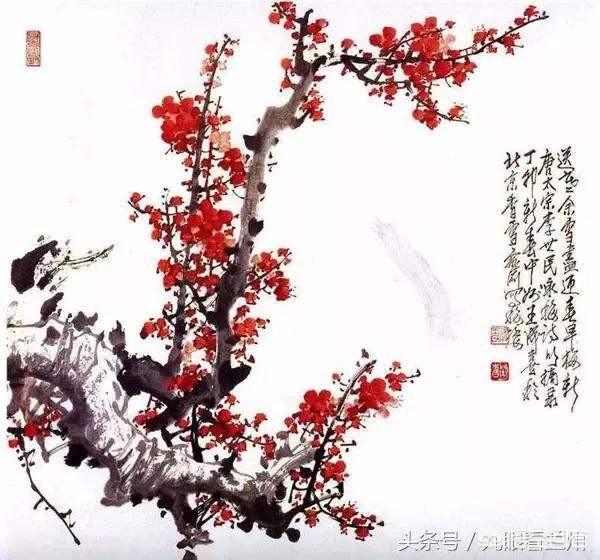 送寒余雪盡迎春早梅新
唐太宗李世民咏梅诗句摘录
丁卯新春中浣王成喜於
北京香雪斋
头条号 /